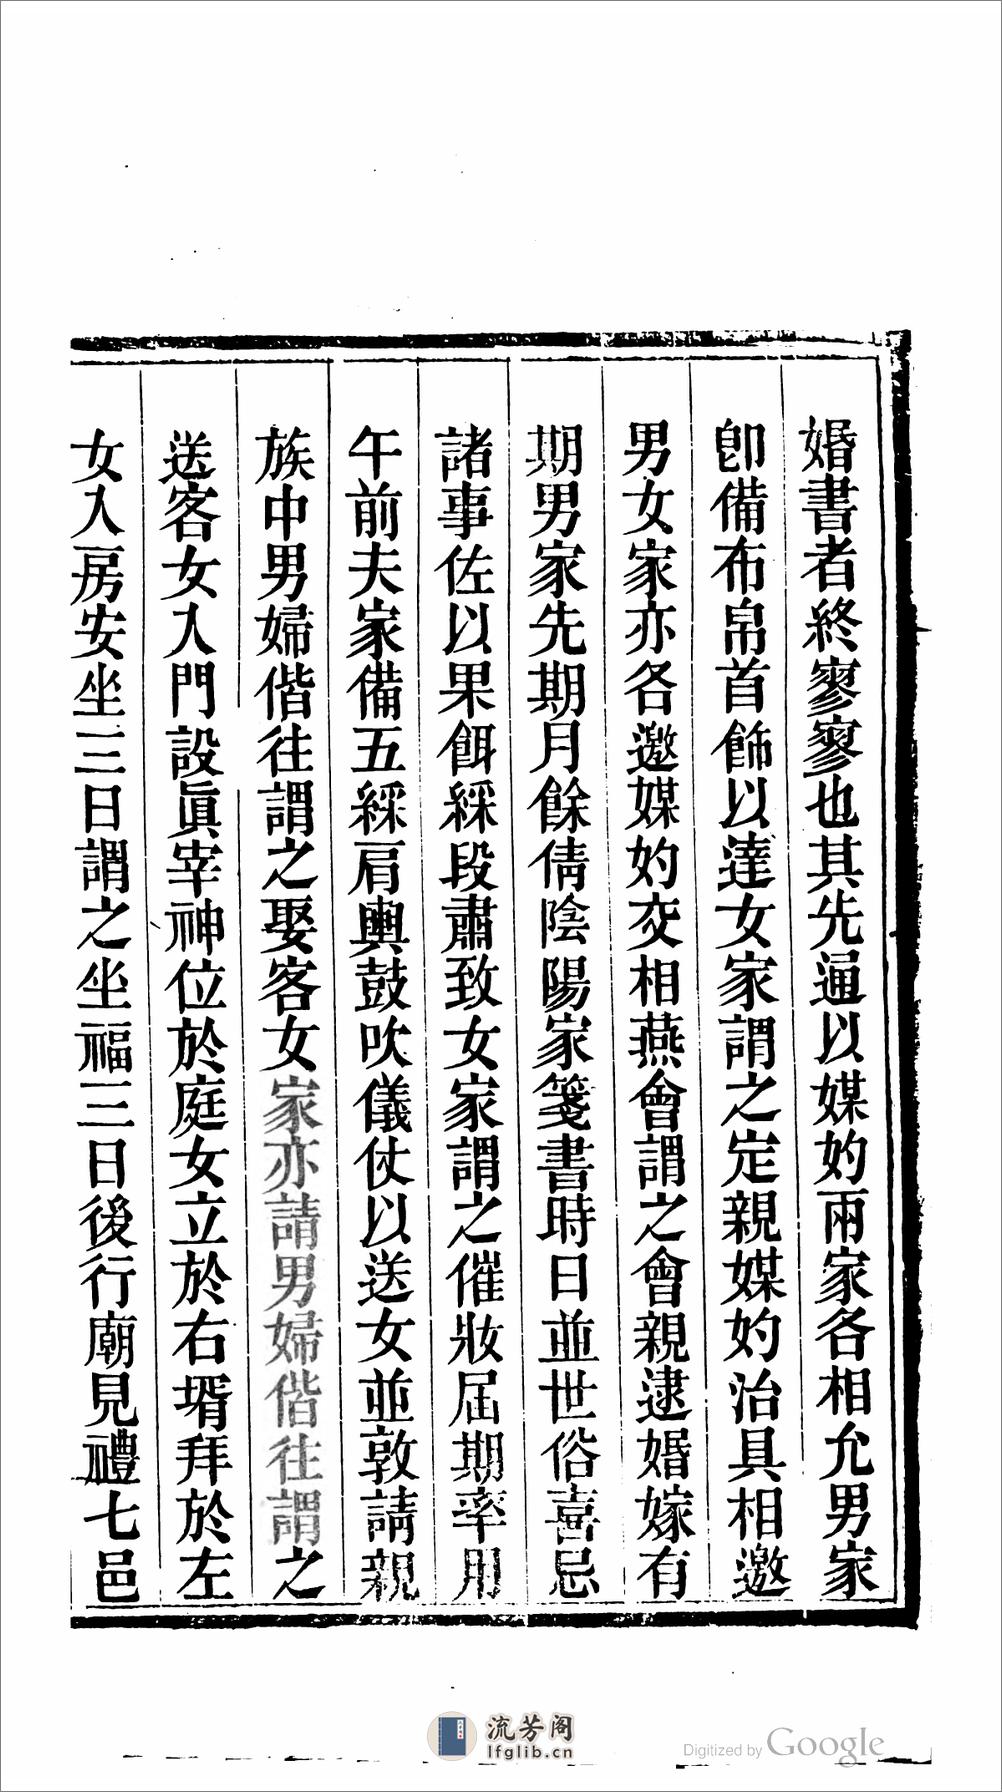 婚書者終寥寥也其先通以媒妁兩家各相允男家
卽備布帛首飾以達女家謂之定親媒妁治具相邀
男女家亦各邀媒妁交相燕會謂之會親逮婚嫁有
期男家先期月餘倩陰陽家箋書時日並世俗喜忌
諸事佐以果餌綵段肅致女家謂之催妝屆期率用
午前夫家備五綵肩輿鼓吹儀仗以送女並敦請親
族中男婦偕往謂之娶客女家亦請男婦偕往謂之
送客女入門設眞宰神位於庭女立於右壻拜於左
女入房安坐三日謂之坐福三日後行廟見禮七邑
流芳阁
lfglib.cn
Digitized by Google